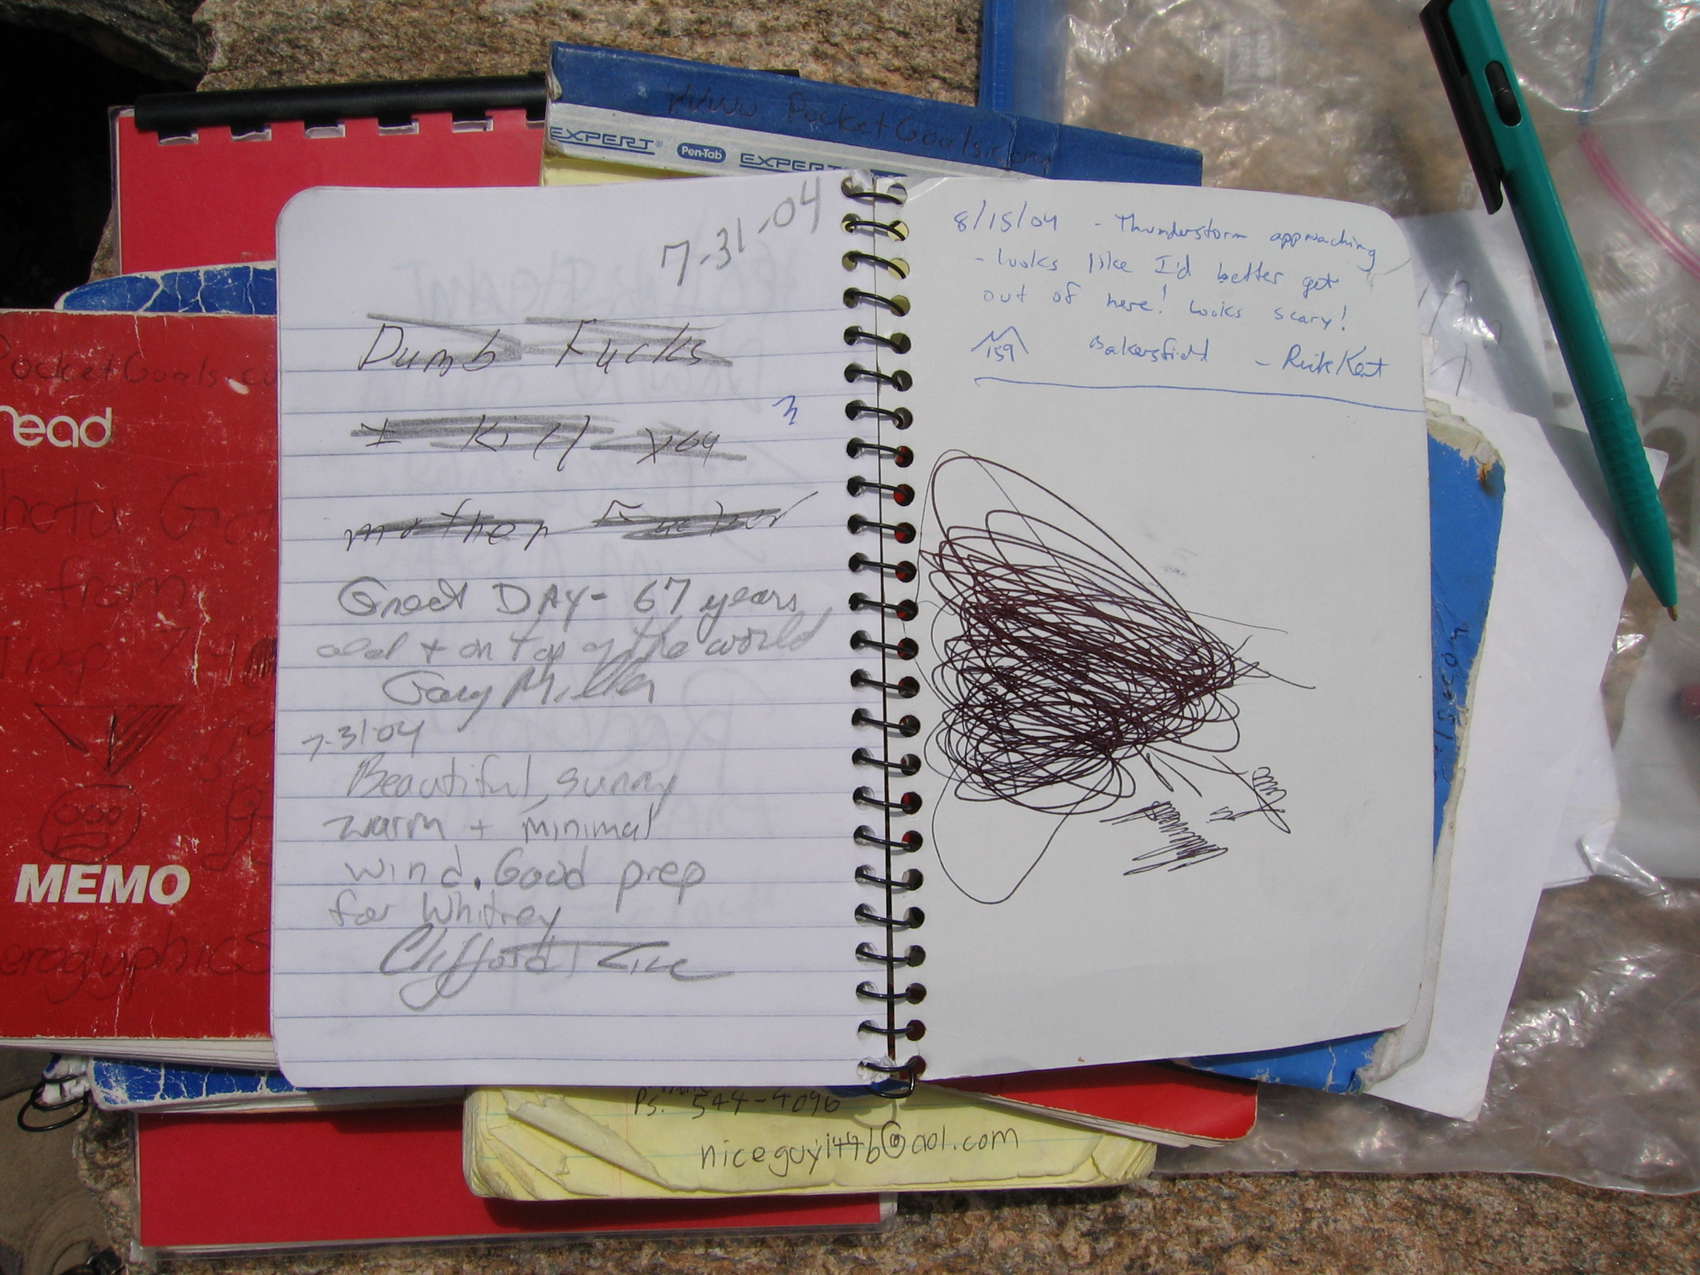 www.PocketGoals.org
EXPERT Pen-Tab EXPERT
PocketGoals.
Mead
from
MEMO
7-31-04
Dumb Fucks
I Kill You
mother Fucker
Great DAY- 67 years
old + on top of the world
Gary Miller
7-31-04
Beautiful, sunny
warm + minimal
wind. Good prep
for Whitney
Clifford
8/15/04 - Thunderstorm approaching
- Looks like I'd better get
out of here! Looks scary!
159 Bakersfield - Rick Kent
Ps. 544-4096
niceguy1446@aol.com